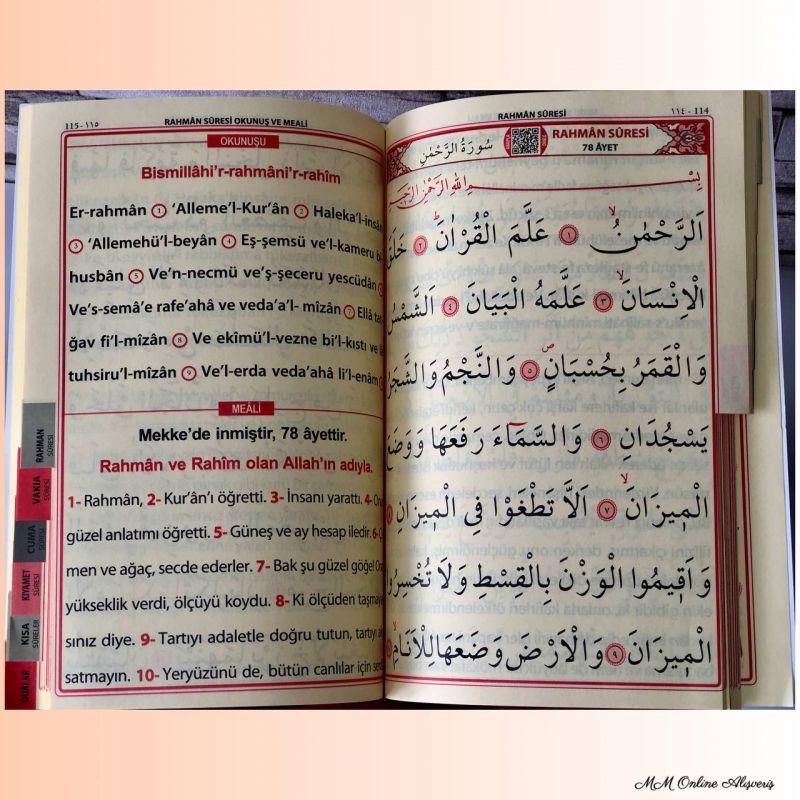 115 - ١١٥
RAHMÂN SÛRESİ OKUNUŞ VE MEALİ
OKUNUŞU
Bismillâhi'r-rahmâni'r-rahîm
Er-rahmân 1 'Alleme'l-Kur'ân 2 Haleka'l-insân
3 'Allemehü'l-beyân 4 Eş-şemsü ve'l-kameru bi
husbân 5 Ve'n-necmü ve'ş-şeceru yescüdân
Ve's-semâ'e rafe'ahâ ve veda'a'l- mîzân 7 Ellâ tat
ğav fi'l-mîzân 8 Ve ekîmü'l-vezne bi'l-kıstı ve lâ
tuhsiru'l-mîzân 9 Ve'l-erda veda'ahâ li'l-enâm
MEÂLİ
Mekke'de inmiştir, 78 âyettir.
Rahmân ve Rahîm olan Allah'ın adıyla.
1- Rahmân, 2- Kur'ân'ı öğretti. 3- İnsanı yarattı. 4-
güzel anlatımı öğretti. 5- Güneş ve ay hesap iledir. 6-
men ve ağaç, secde ederler. 7- Bak şu güzel göğe!
yükseklik verdi, ölçüyü koydu. 8- Ki ölçüden taşmaya
sınız diye. 9- Tartıyı adaletle doğru tutun, tartıyı
satmayın. 10- Yeryüzünü de, bütün canlılar için
RAHMAN SÛRESİ
VAKIA SÛRESİ
CUMA SÛRESİ
KIYAMET SÛRESİ
KISA SÛRELER
DUALAR
RAHMÂN SÛRESİ
١١٤ - 114
سُورَةُ الرَّحْمٰنِ
RAHMÂN SÛRESİ
78 ÂYET
بِسْمِ اللّٰهِ الرَّحْمٰنِ الرَّحِيمِ
اَلرَّحْمٰنُۙ ١ عَلَّمَ الْقُرْاٰنَۜ ٢ خَلَقَ
الْاِنْسَانَۙ ٣ عَلَّمَهُ الْبَيَانَ ٤ اَلشَّمْسُ
وَالْقَمَرُ بِحُسْبَانٍۖ ٥ وَالنَّجْمُ وَالشَّجَرُ
يَسْجُدَانِ ٦ وَالسَّمَٓاءَ رَفَعَهَا وَوَضَعَ
الْم۪يزَانَۙ ٧ اَلَّا تَطْغَوْا فِي الْم۪يزَانِ
وَاَق۪يمُوا الْوَزْنَ بِالْقِسْطِ وَلَا تُخْسِرُوا
الْم۪يزَانَ ٩ وَالْاَرْضَ وَضَعَهَا لِلْاَنَامِ
MM Online Alışveriş